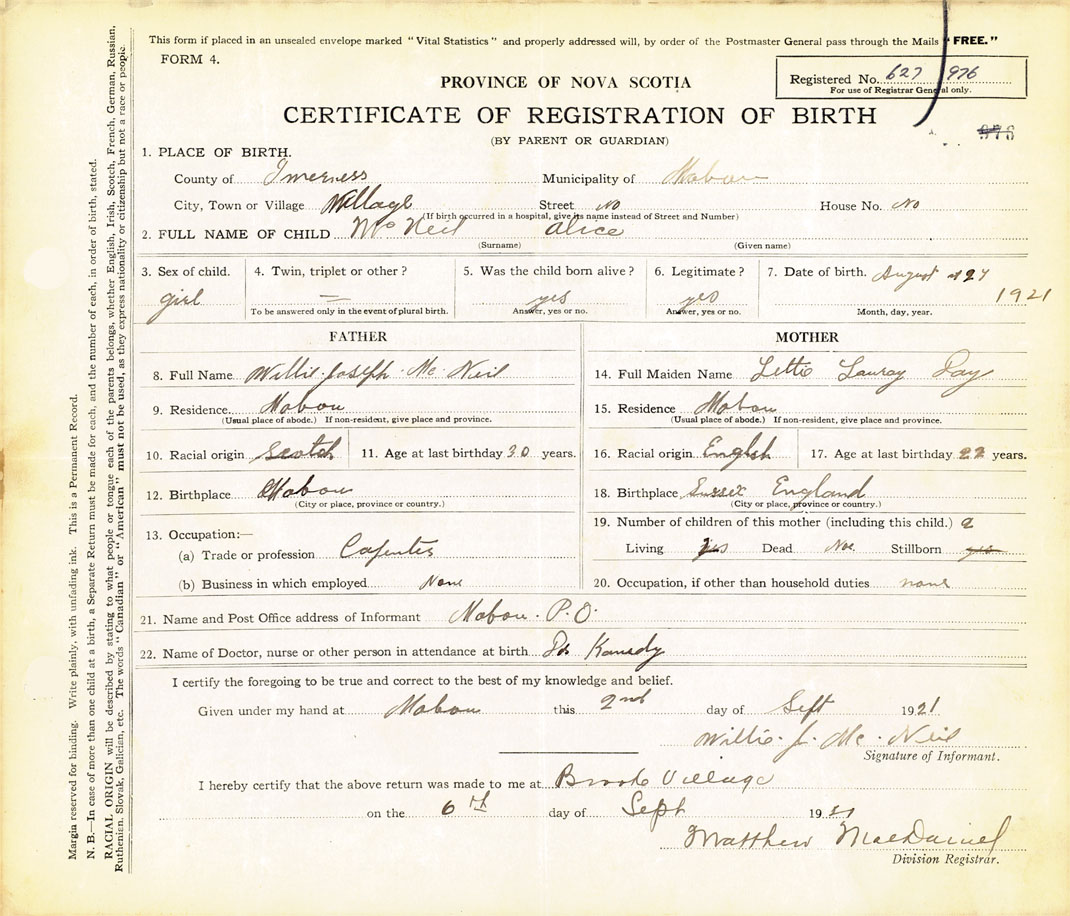 This form if placed in an unsealed envelope marked "Vital Statistics" and properly addressed will, by order of the Postmaster General pass through the Mails "FREE."
FORM 4.
PROVINCE OF NOVA SCOTIA
Registered No. 627 976
For use of Registrar General only.
CERTIFICATE OF REGISTRATION OF BIRTH
976
(BY PARENT OR GUARDIAN)
1. PLACE OF BIRTH.
County of Inverness Municipality of Mabou
City, Town or Village Village Street No House No. No
(If birth occurred in a hospital, give its name instead of Street and Number)
2. FULL NAME OF CHILD McNeil alice
(Surname) (Given name)
3. Sex of child. 4. Twin, triplet or other? 5. Was the child born alive? 6. Legitimate? 7. Date of birth. August 27
girl — yes yes 1921
To be answered only in the event of plural birth. Answer, yes or no. Answer, yes or no. Month, day, year.
FATHER MOTHER
8. Full Name Willie Joseph Mc Neil 14. Full Maiden Name Lettie Lauray Day
9. Residence Mabou 15. Residence Mabou
(Usual place of abode.) If non-resident, give place and province. (Usual place of abode.) If non-resident, give place and province.
10. Racial origin Scotch 11. Age at last birthday 30 years. 16. Racial origin English 17. Age at last birthday 22 years.
12. Birthplace Mabou 18. Birthplace Sussex England
(City or place, province or country.) (City or place, province or country.)
13. Occupation:— 19. Number of children of this mother (including this child.) 2
(a) Trade or profession Capenter Living yes Dead Stillborn yes
(b) Business in which employed None 20. Occupation, if other than household duties none
21. Name and Post Office address of Informant Mabou P.O.
22. Name of Doctor, nurse or other person in attendance at birth Dr Kanedy
I certify the foregoing to be true and correct to the best of my knowledge and belief.
Given under my hand at Mabou this 2nd day of Sept 1921
Willie J. Mc Neil
Signature of Informant.
I hereby certify that the above return was made to me at Brook Village
on the 6th day of Sept 1921
Matthew MacDaniel
Division Registrar.
Margin reserved for binding. Write plainly, with unfading ink. This is a Permanent Record.
N. B.—In case of more than one child at a birth, a Separate Return must be made for each, and the number of each, in order of birth, stated.
RACIAL ORIGIN will be described by stating to what people or tongue each of the parents belongs, whether English, Irish, Scotch, French, German, Russian,
Ruthenian, Slovak, Galician, etc. The words "Canadian" or "American" must not be used, as they express nationality or citizenship but not a race or people.